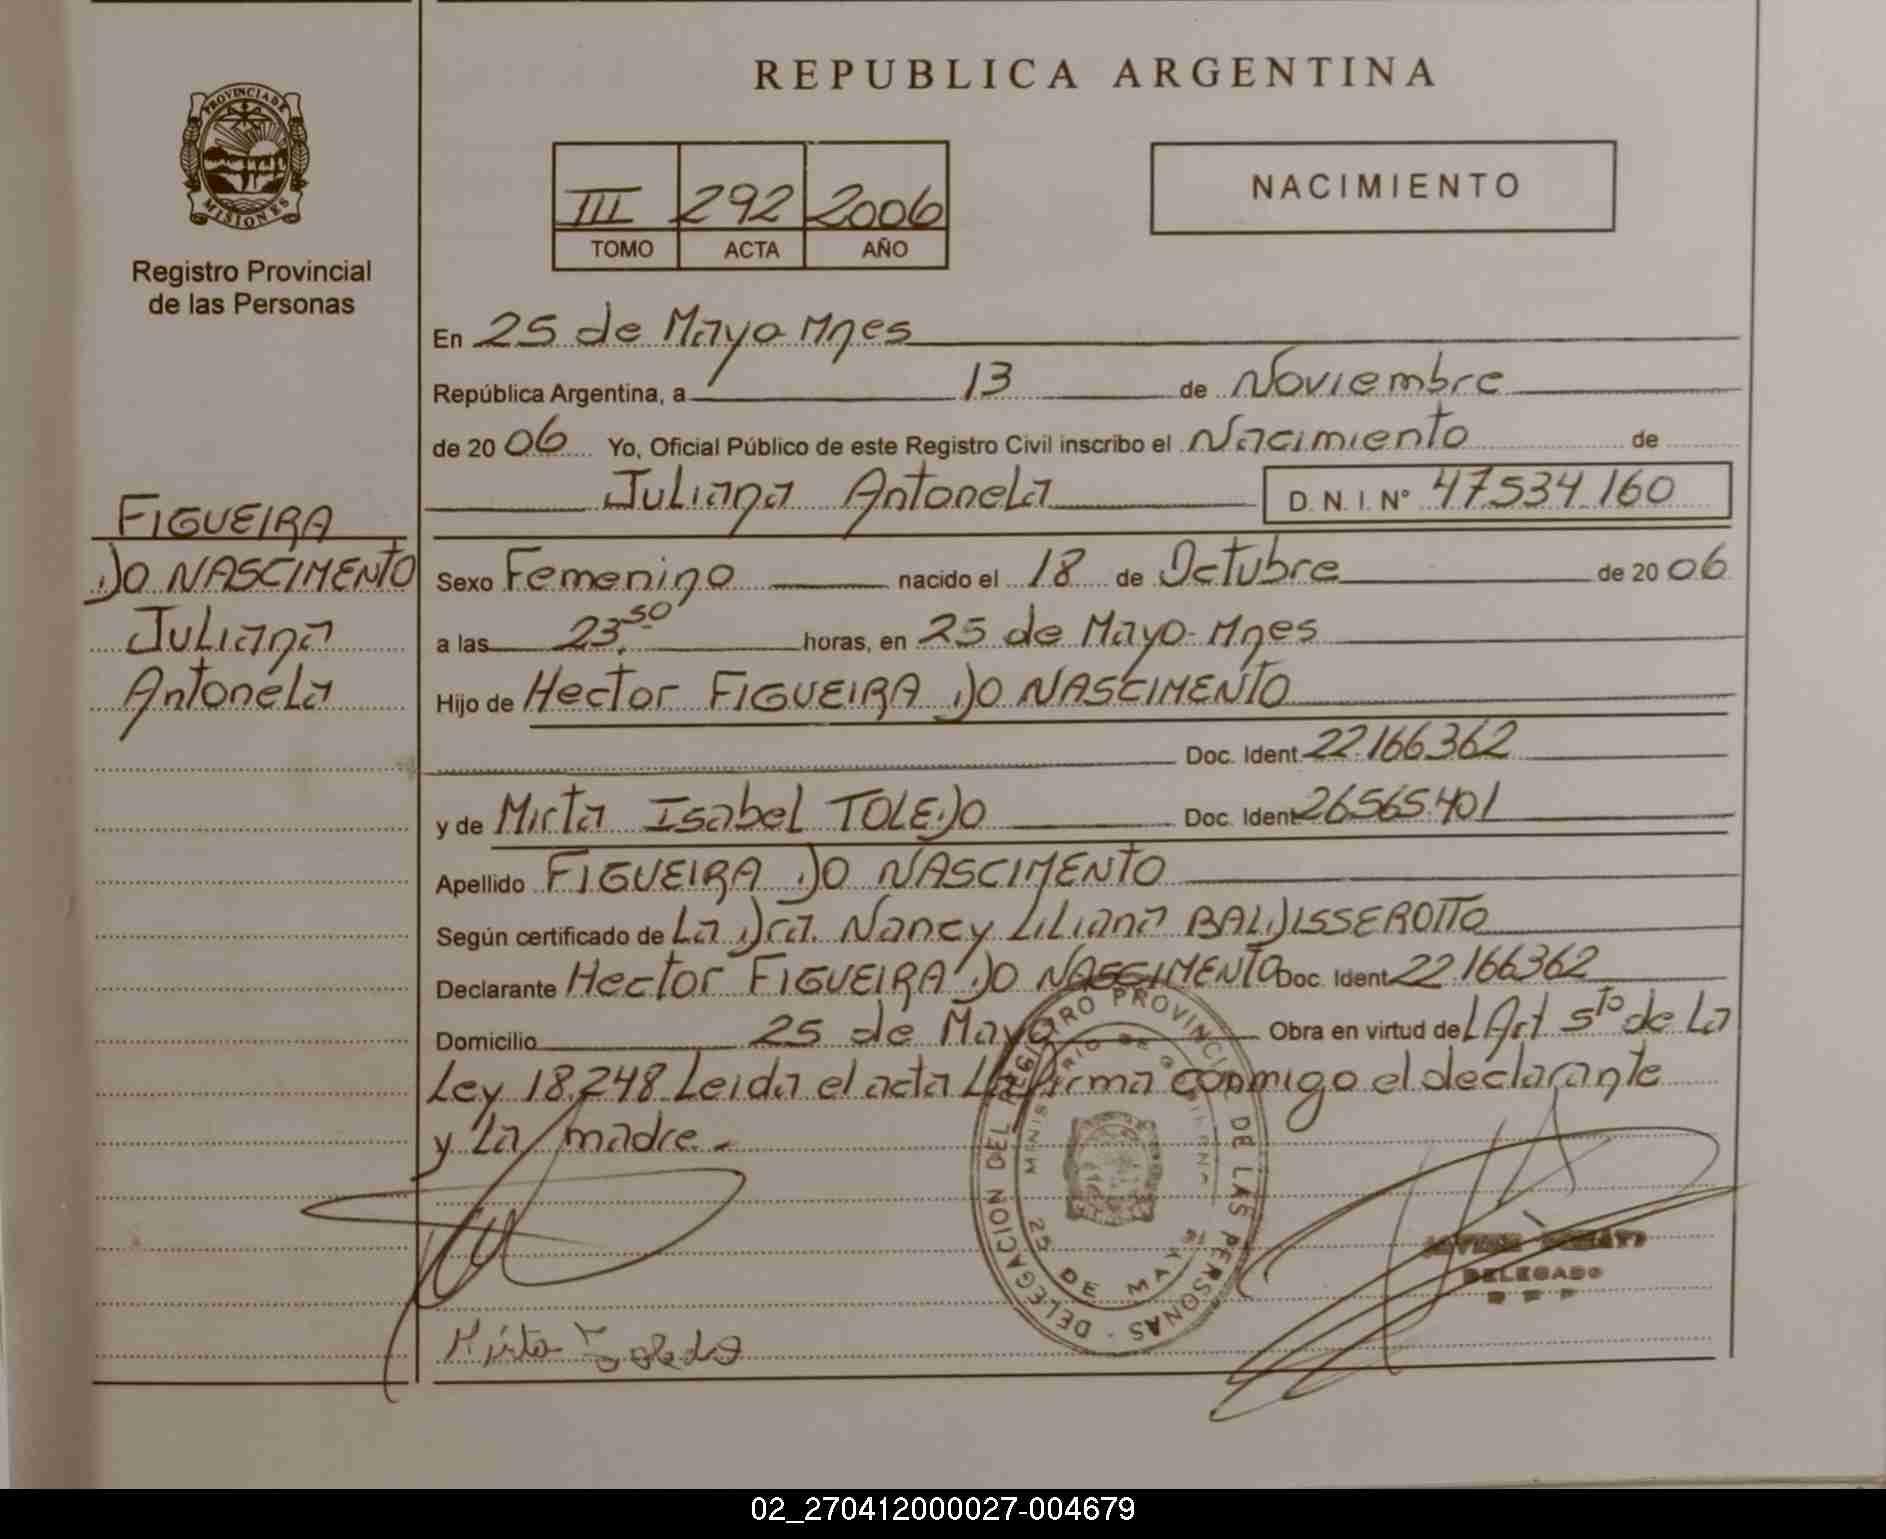 REPUBLICA ARGENTINA
PROVINCIA DE
MISIONES
Registro Provincial
de las Personas
III 292 2006
TOMO ACTA AÑO
NACIMIENTO
En 25 de Mayo Mnes
República Argentina, a 13 de Noviembre
de 20 06 Yo, Oficial Público de este Registro Civil inscribo el Nacimiento de
Juliana Antonela D. N. I. N° 47.534.160
FIGUEIRA
DO NASCIMENTO
Juliana
Antonela
Sexo Femenino nacido el 18 de Octubre de 20 06
a las 23.50 horas, en 25 de Mayo-Mnes
Hijo de Hector FIGUEIRA DO NASCIMENTO
Doc. Ident. 22.166.362
y de Mirta Isabel TOLEDO Doc. Ident. 26.565.401
Apellido FIGUEIRA DO NASCIMENTO
Según certificado de La Dra. Nancy Liliana BALDISSEROTTO
Declarante Hector FIGUEIRA DO NASCIMENTO Doc. Ident. 22.166.362
Domicilio 25 de Mayo Obra en virtud del Art 5to de La
Ley 18.248 Leida el acta La firma conmigo el declarante
y La madre.-
DELEGACION DEL REGISTRO PROVINCIAL DE LAS PERSONAS
MINISTERIO DE GOBIERNO
25 DE MAYO
DELEGADO
Mirta Toledo
02_270412000027-004679